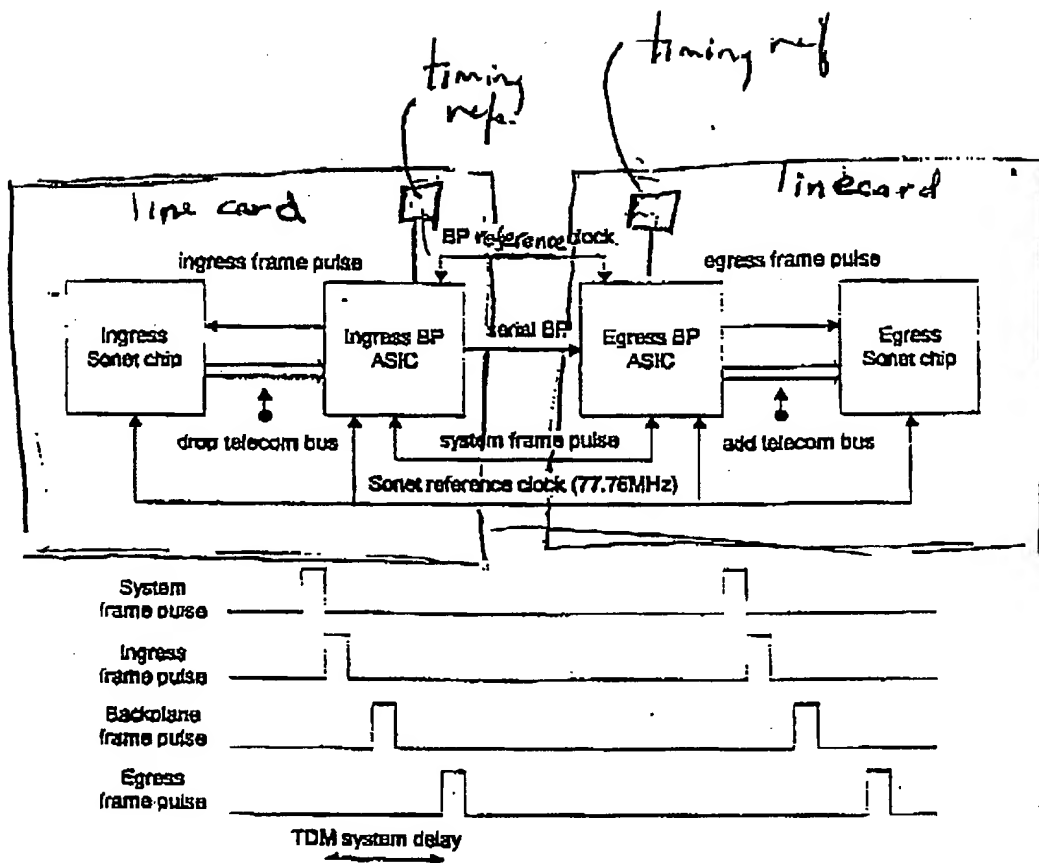 timing
refe.
timing ref
line card
linecard
BP reference clock
ingress frame pulse
egress frame pulse
Ingress
Sonet chip
Ingress BP
ASIC
serial BP
Egress BP
ASIC
Egress
Sonet chip
drop telecom bus
system frame pulse
add telecom bus
Sonet reference clock (77.76MHz)
System
frame pulse
Ingress
frame pulse
Backplane
frame pulse
Egress
frame pulse
TDM system delay